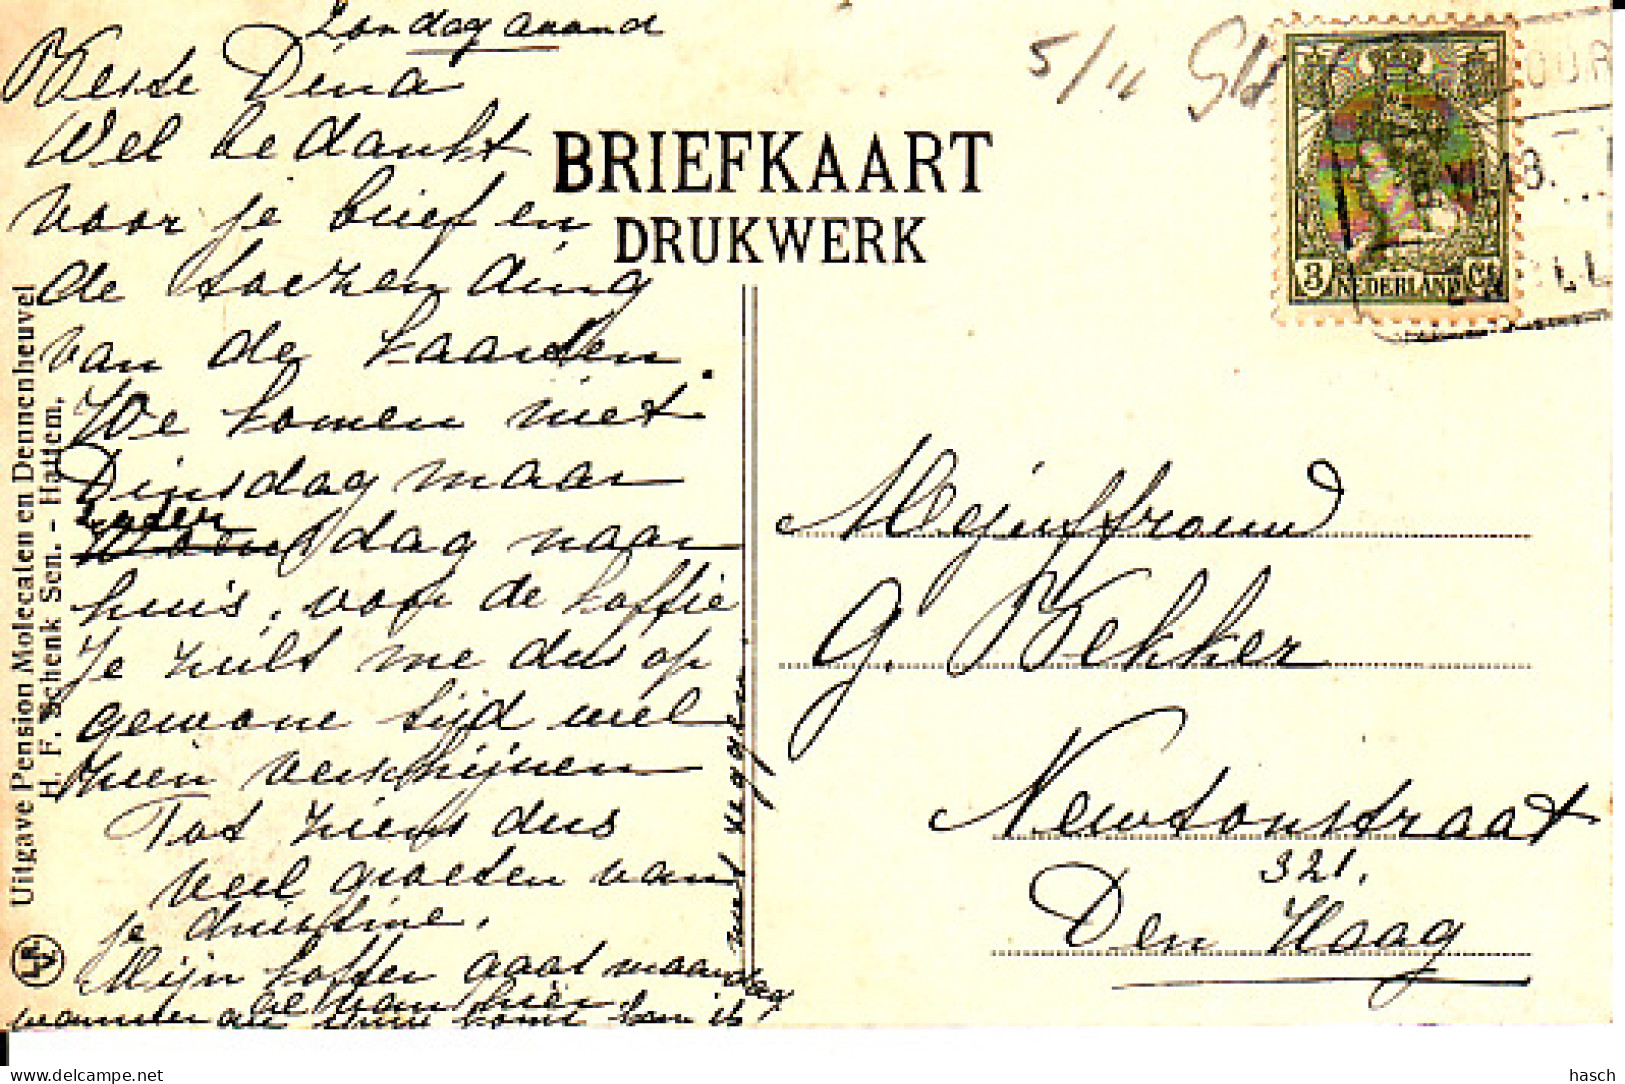 Zondag avond
Beste Dina
Wel bedankt
voor je brief en
de toezending
van de kaarten.
We komen niet
Dinsdag maar
Zater
dag naar
huis, voor de koffie
Je zult me dus op
gewone tijd wel
zien verschijnen
Tot ziens dus
veel groeten van
je Christine.
Mijn koffer gaat maandag
al van hier
wanneer die thuis komt kan ik
niet zeggen
Uitgave Pension Molecaten en Dennenheuvel
H. F. Schenk Sen. - Hattem.
BRIEFKAART
DRUKWERK
5/11
3 NEDERLAND Ct
Mejuffrouw
G. Bekker
Newtonstraat
321.
Den Haag
hasch
www.delcampe.net